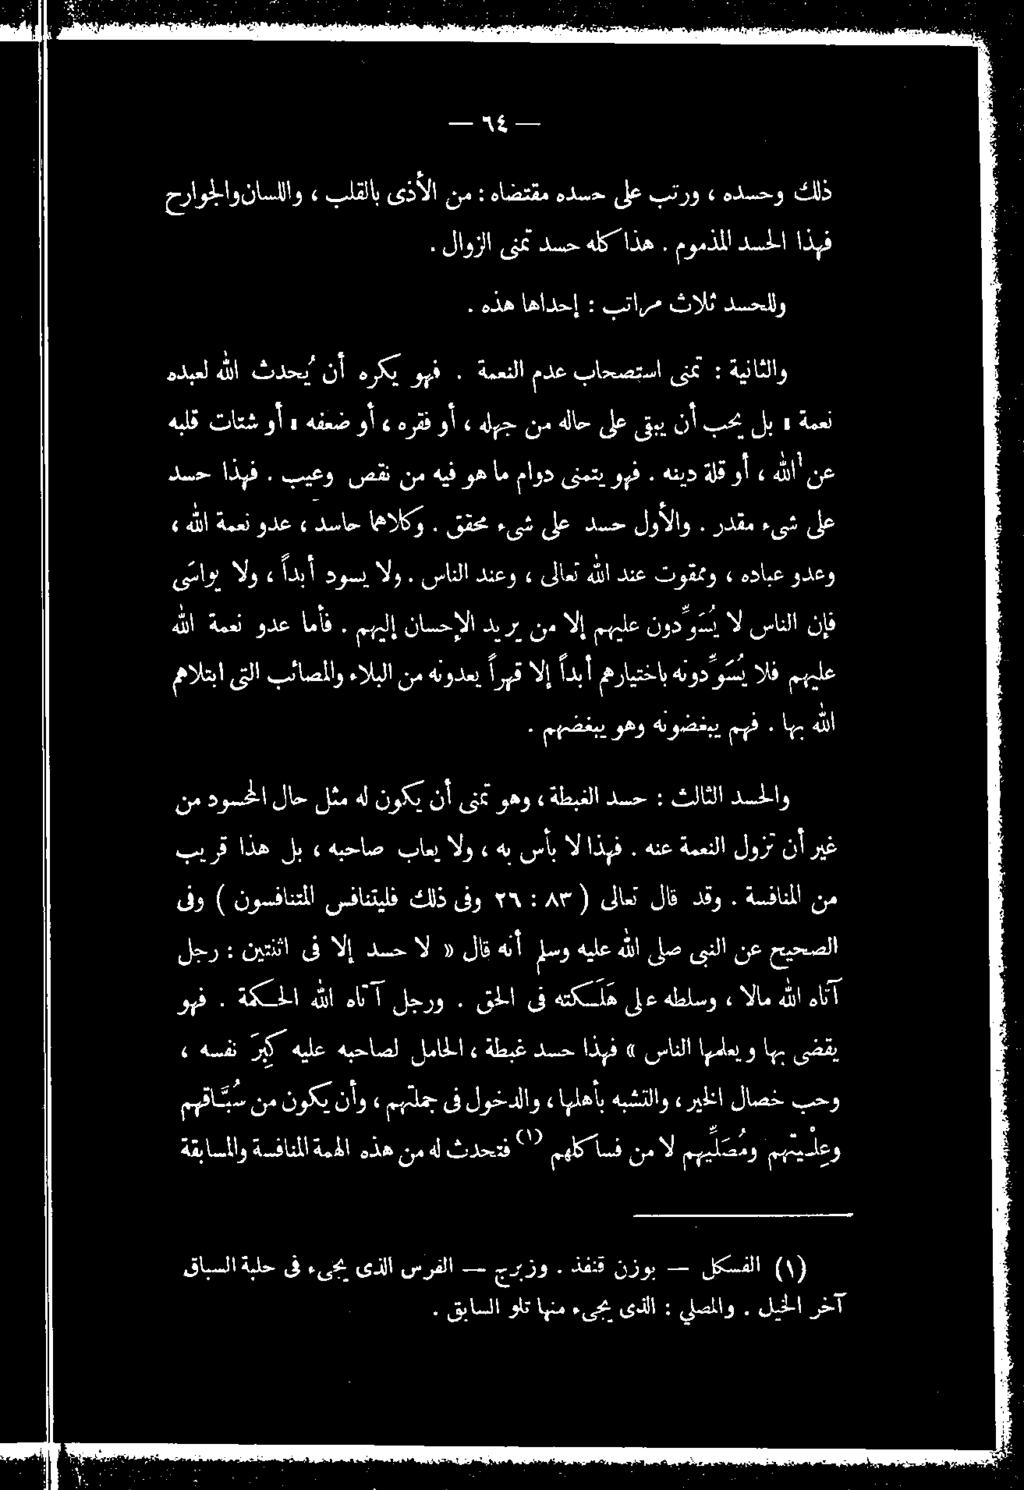 — ٦٤ —
ذلك وحسده ، ورتب على حسده مقتضاه : من الأذى بالقلب ، واللسان والجوارح
فهذا الحسد المذموم . هذا كله حسد تمنى الزوال .
وللحسد ثلاث مراتب : إحداها هذه .
والثانية : تمنى استصحاب عدم النعمة . فهو يكره أن يُحدث الله لعبده
نعمة ، بل يحب أن يبقى على حاله من جهله ، أو فقره ، أو ضعفه ، أو شتات قلبه
عن الله ، أو قلة دينه . فهو يتمنى دوام ما هو فيه من نقص وعيب . فهذا حسد
على شىء مقدر . والأول حسد على شىء محقق . وكلاهما حاسد ، عدو نعمة الله ،
وعدو عباده ، وممقوت عند الله تعالى ، وعند الناس . ولا يسود أبداً ، ولا يواسَى
فإن الناس لا يُسَوِّدون عليهم إلا من يريد الإحسان إليهم . فأما عدو نعمة الله
عليهم فلا يُسَوِّدونه باختيارهم أبداً إلا قهراً يعدونه من البلاء والمصائب التى ابتلاهم
الله بها . فهم يبغضونه وهو يبغضهم .
والحسد الثالث : حسد الغبطة ، وهو تمنى أن يكون له مثل حال المحسود من
غير أن تزول النعمة عنه . فهذا لا بأس به ، ولا يعاب صاحبه ، بل هذا قريب
من المنافسة . وقد قال تعالى ( ٨٣ : ٢٦ وفى ذلك فليتنافس المتنافسون ) وفى
الصحيح عن النبى صلى الله عليه وسلم أنه قال « لا حسد إلا فى اثنتين : رجل
آتاه الله مالا ، وسلطه على هَلَكته فى الحق . ورجل آتاه الله الحكمة . فهو
يقضى بها ويعلمها الناس » فهذا حسد غبطة ، الحامل لصاحبه عليه كِبَرُ نفسه ،
وحب خصال الخير ، والتشبه بأهلها ، والدخول فى جملتهم ، وأن يكون من سُبَّاقهم
وعِلْيتهم ومُصَلِّيهم لا من فساكلهم (١) فتحدث له من هذه الهمة المنافسة والمسابقة
(١) الفسكل — بوزن قنفذ . وزبرج — الفرس الذى يجىء فى حلبة السباق
آخر الخيل . والمصلي : الذى يجىء منها تلو السابق .